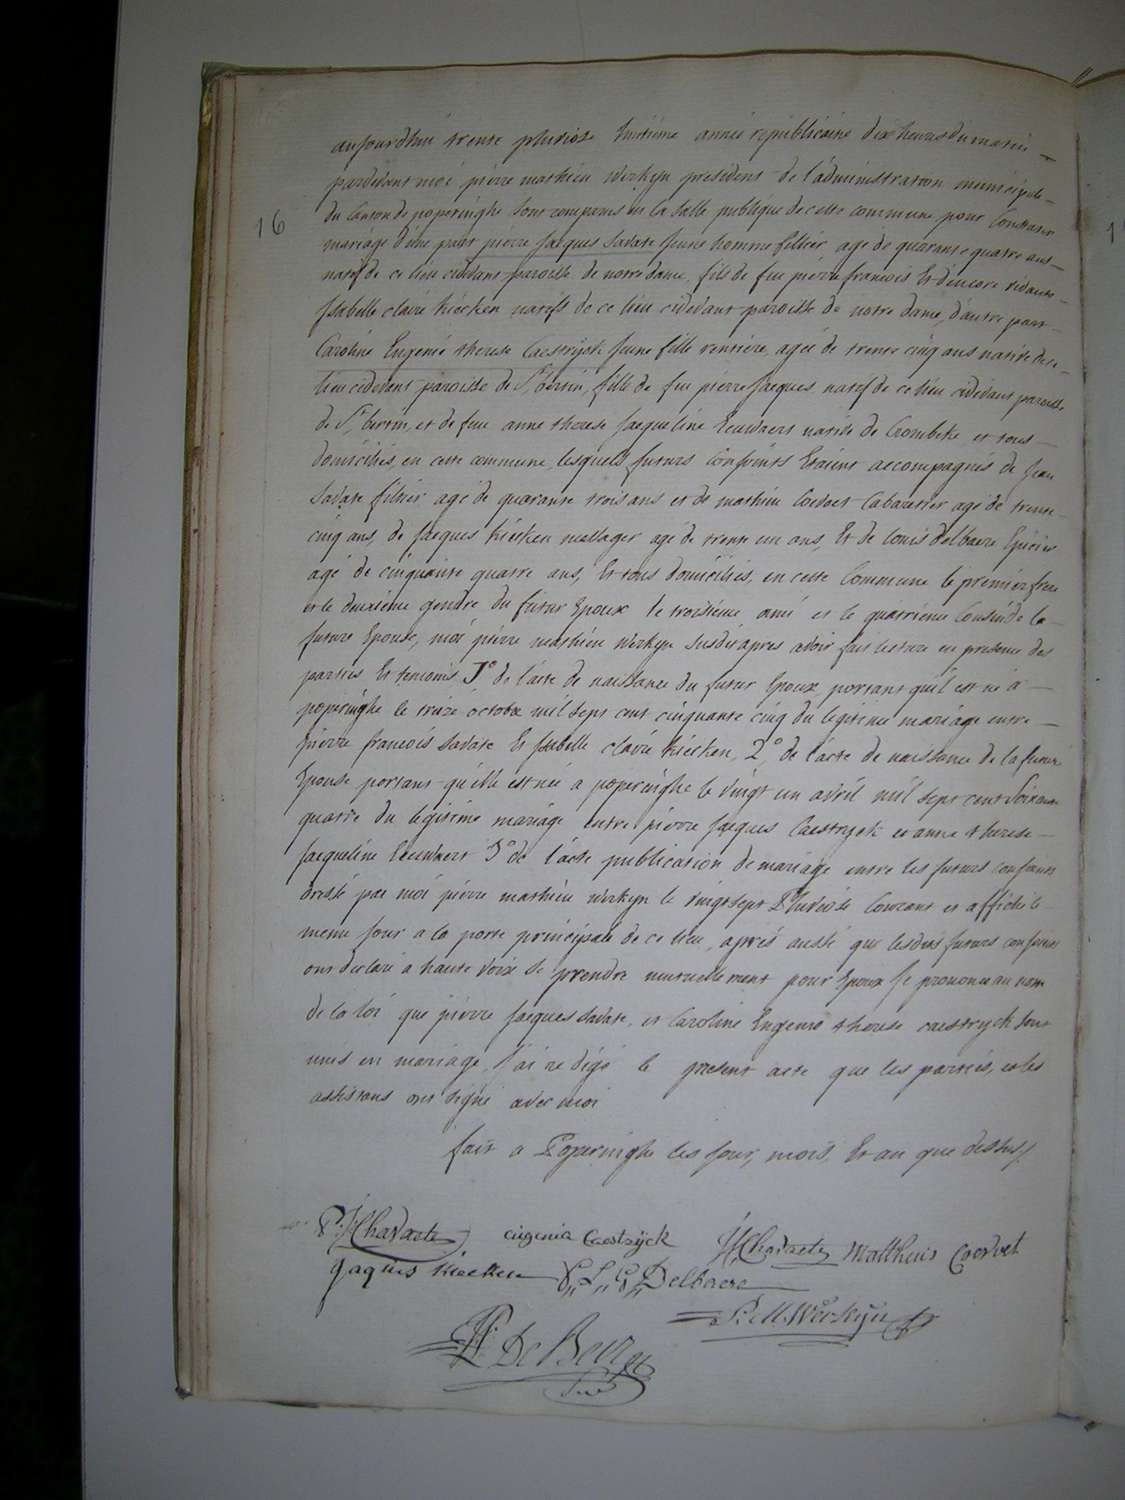 16
aujourdhui trente pluviose huitieme année republicaine dix heures du matin
pardevant moi pierre mathieu Werkyn president de l'administration municipale
du Canton de poperinghe sont comparus en la salle publique de cette commune pour Contracter
mariage d'une part pierre Jacques Savate jeune homme fillier agé de quarante quatre ans
natif de ce lieu cidevant paroisse de notre dame, fils de feu pierre francois Et d'encore vivante
Isabelle claire Kiecken natifs de ce lieu cidevant paroisse de notre dame, d'autre part
Caroline Eugenie therese Caestryck Jeune fille rentiere, agée de trente cinq ans native de ce
lieu cidevant paroisse de St bertin, fille de feu pierre Jacques natif de ce lieu cidevant paroisse
de St bertin, et de feue anne therese Jacqueline Leuwaert native de Crombeke et tous
domiciliés en cette commune, lesquels futurs Conjoints Etaient accompagnés de Jean
Savate filtier agé de quarante trois ans et de mathieu Coevoet Cabaretier agé de trente
cinq ans, de Jacques Kiecken messager agé de trente un ans, Et de louis delbaere Epicier
agé de cinquante quatre ans, Et tous domiciliés, en cette Commune le premier frere
et le deuxieme gendre du futur Epoux le troisieme ami et le quatrieme Cousin de la
future Epouse, moi pierre mathieu Werkyn susdit apres avoir fait lecture en presence des
parties Et temoins 1° de l'acte de naissance du futur Epoux portant quil est né a
poperinghe le treize octobre mil sept cent cinquante cinq du legitime mariage entre
pierre francois Savate Et Isabelle claire Kiecken, 2° de l'acte de naissance de la future
Epouse portant qu'elle est née a poperinghe le vingt un avril mil sept cent Soixante
quatre du legitime mariage entre pierre Jacques Caestryck et anne therese
Jacqueline Leuwaert 3° de l'acte publication de mariage entre les futurs conjoints
dressé par moi pierre mathieu Werkyn le vingt sept Pluviose Courant et affiché le
meme jour a la porte principale de ce lieu, aprés aussi que lesdits futurs conjoints
ont declaré a haute voix se prendre mutuellement pour Epoux Je prononce au nom
de la loi que pierre Jacques Savate, et Caroline Eugenie therese caestryck sont
unis en mariage, J'ai redigé le present acte que les parties, et les
assistans ont signé avec moi
fait a Poperinghe les jour, mois, Et an que dessus
P:J: Chavaete eugenia Caestrÿck J: Chavaete Mattheus Coevoet
Jaques Kiecken P,, L,, G,, Delbaere
P: M: Werkÿn
De Beurz